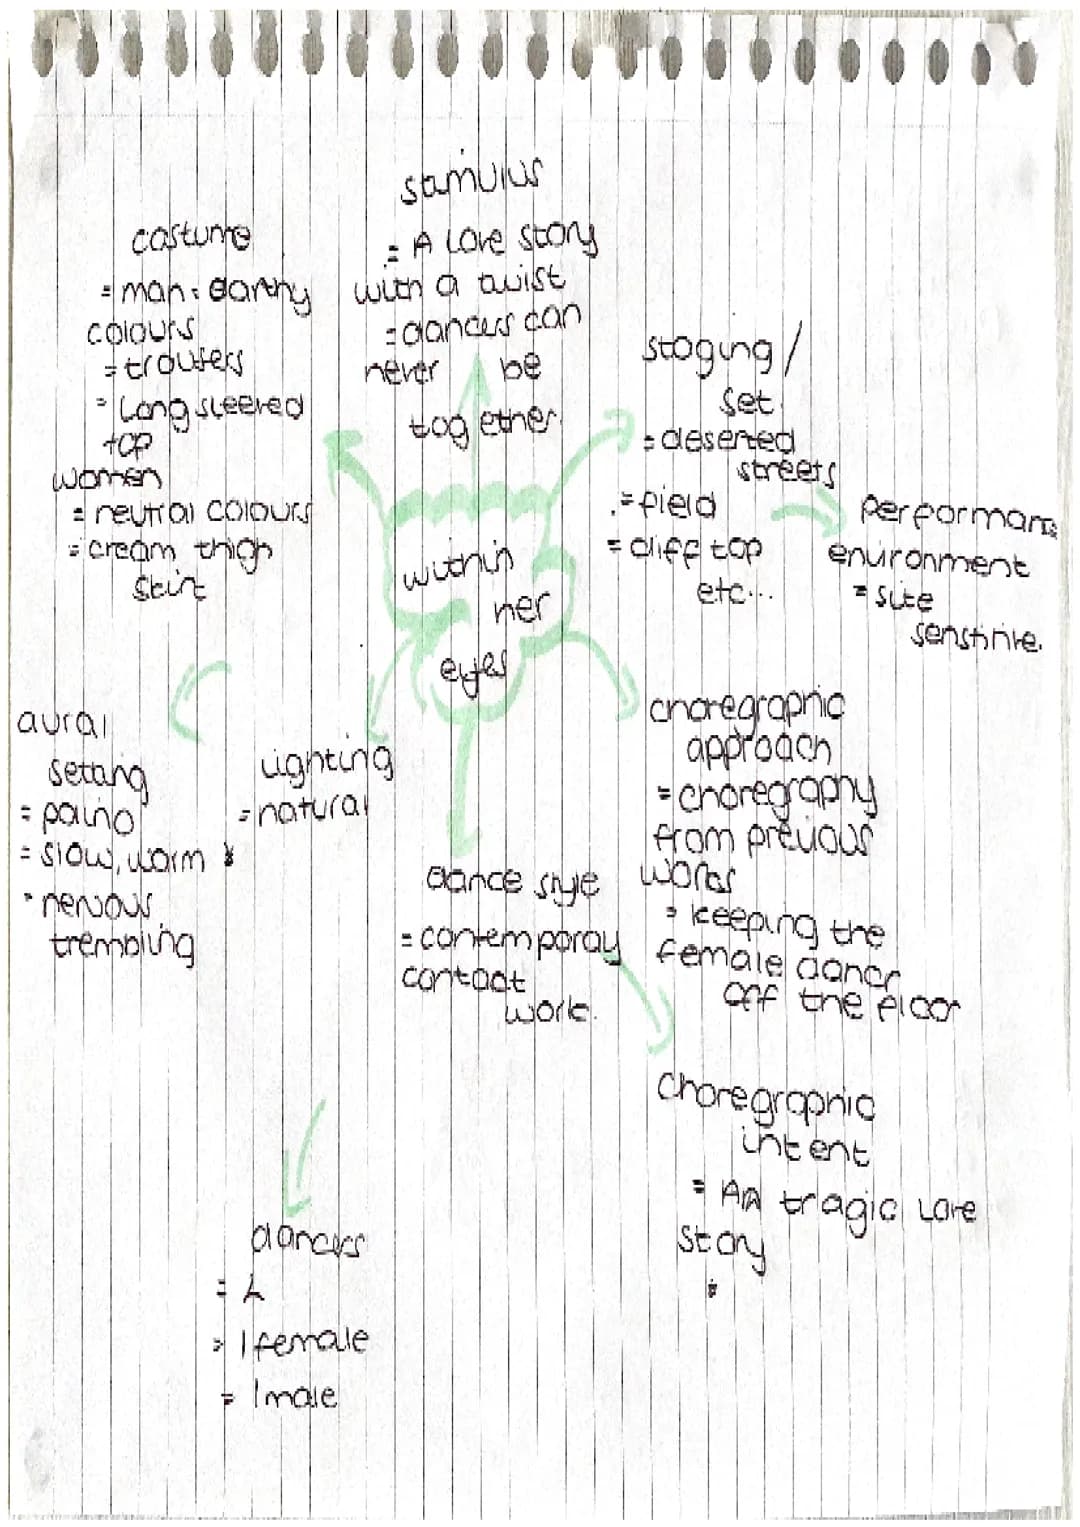 stimulus
= A love story
with a twist
= dancers can
never be
together.
costume
= man: earthy
colours
= trousers
= Long sleeved
top
women
= neutral colours
= cream thigh
skirt
staging /
set
= deserted
streets
= field
= cliff top
etc...
performance
environment
= site
sensitive.
within
her
eyes
aural
setting
= paino
= slow, warm
= nervous
trembling
Lighting
= natural
choregraphic
approach
= choregraphy
from previous
works
= keeping the
female dancr
off the floor
dance style
= contemporay
contact
work.
choregraphic
intent
= An tragic love
story
dancers
= 2
= 1 female
= 1 male